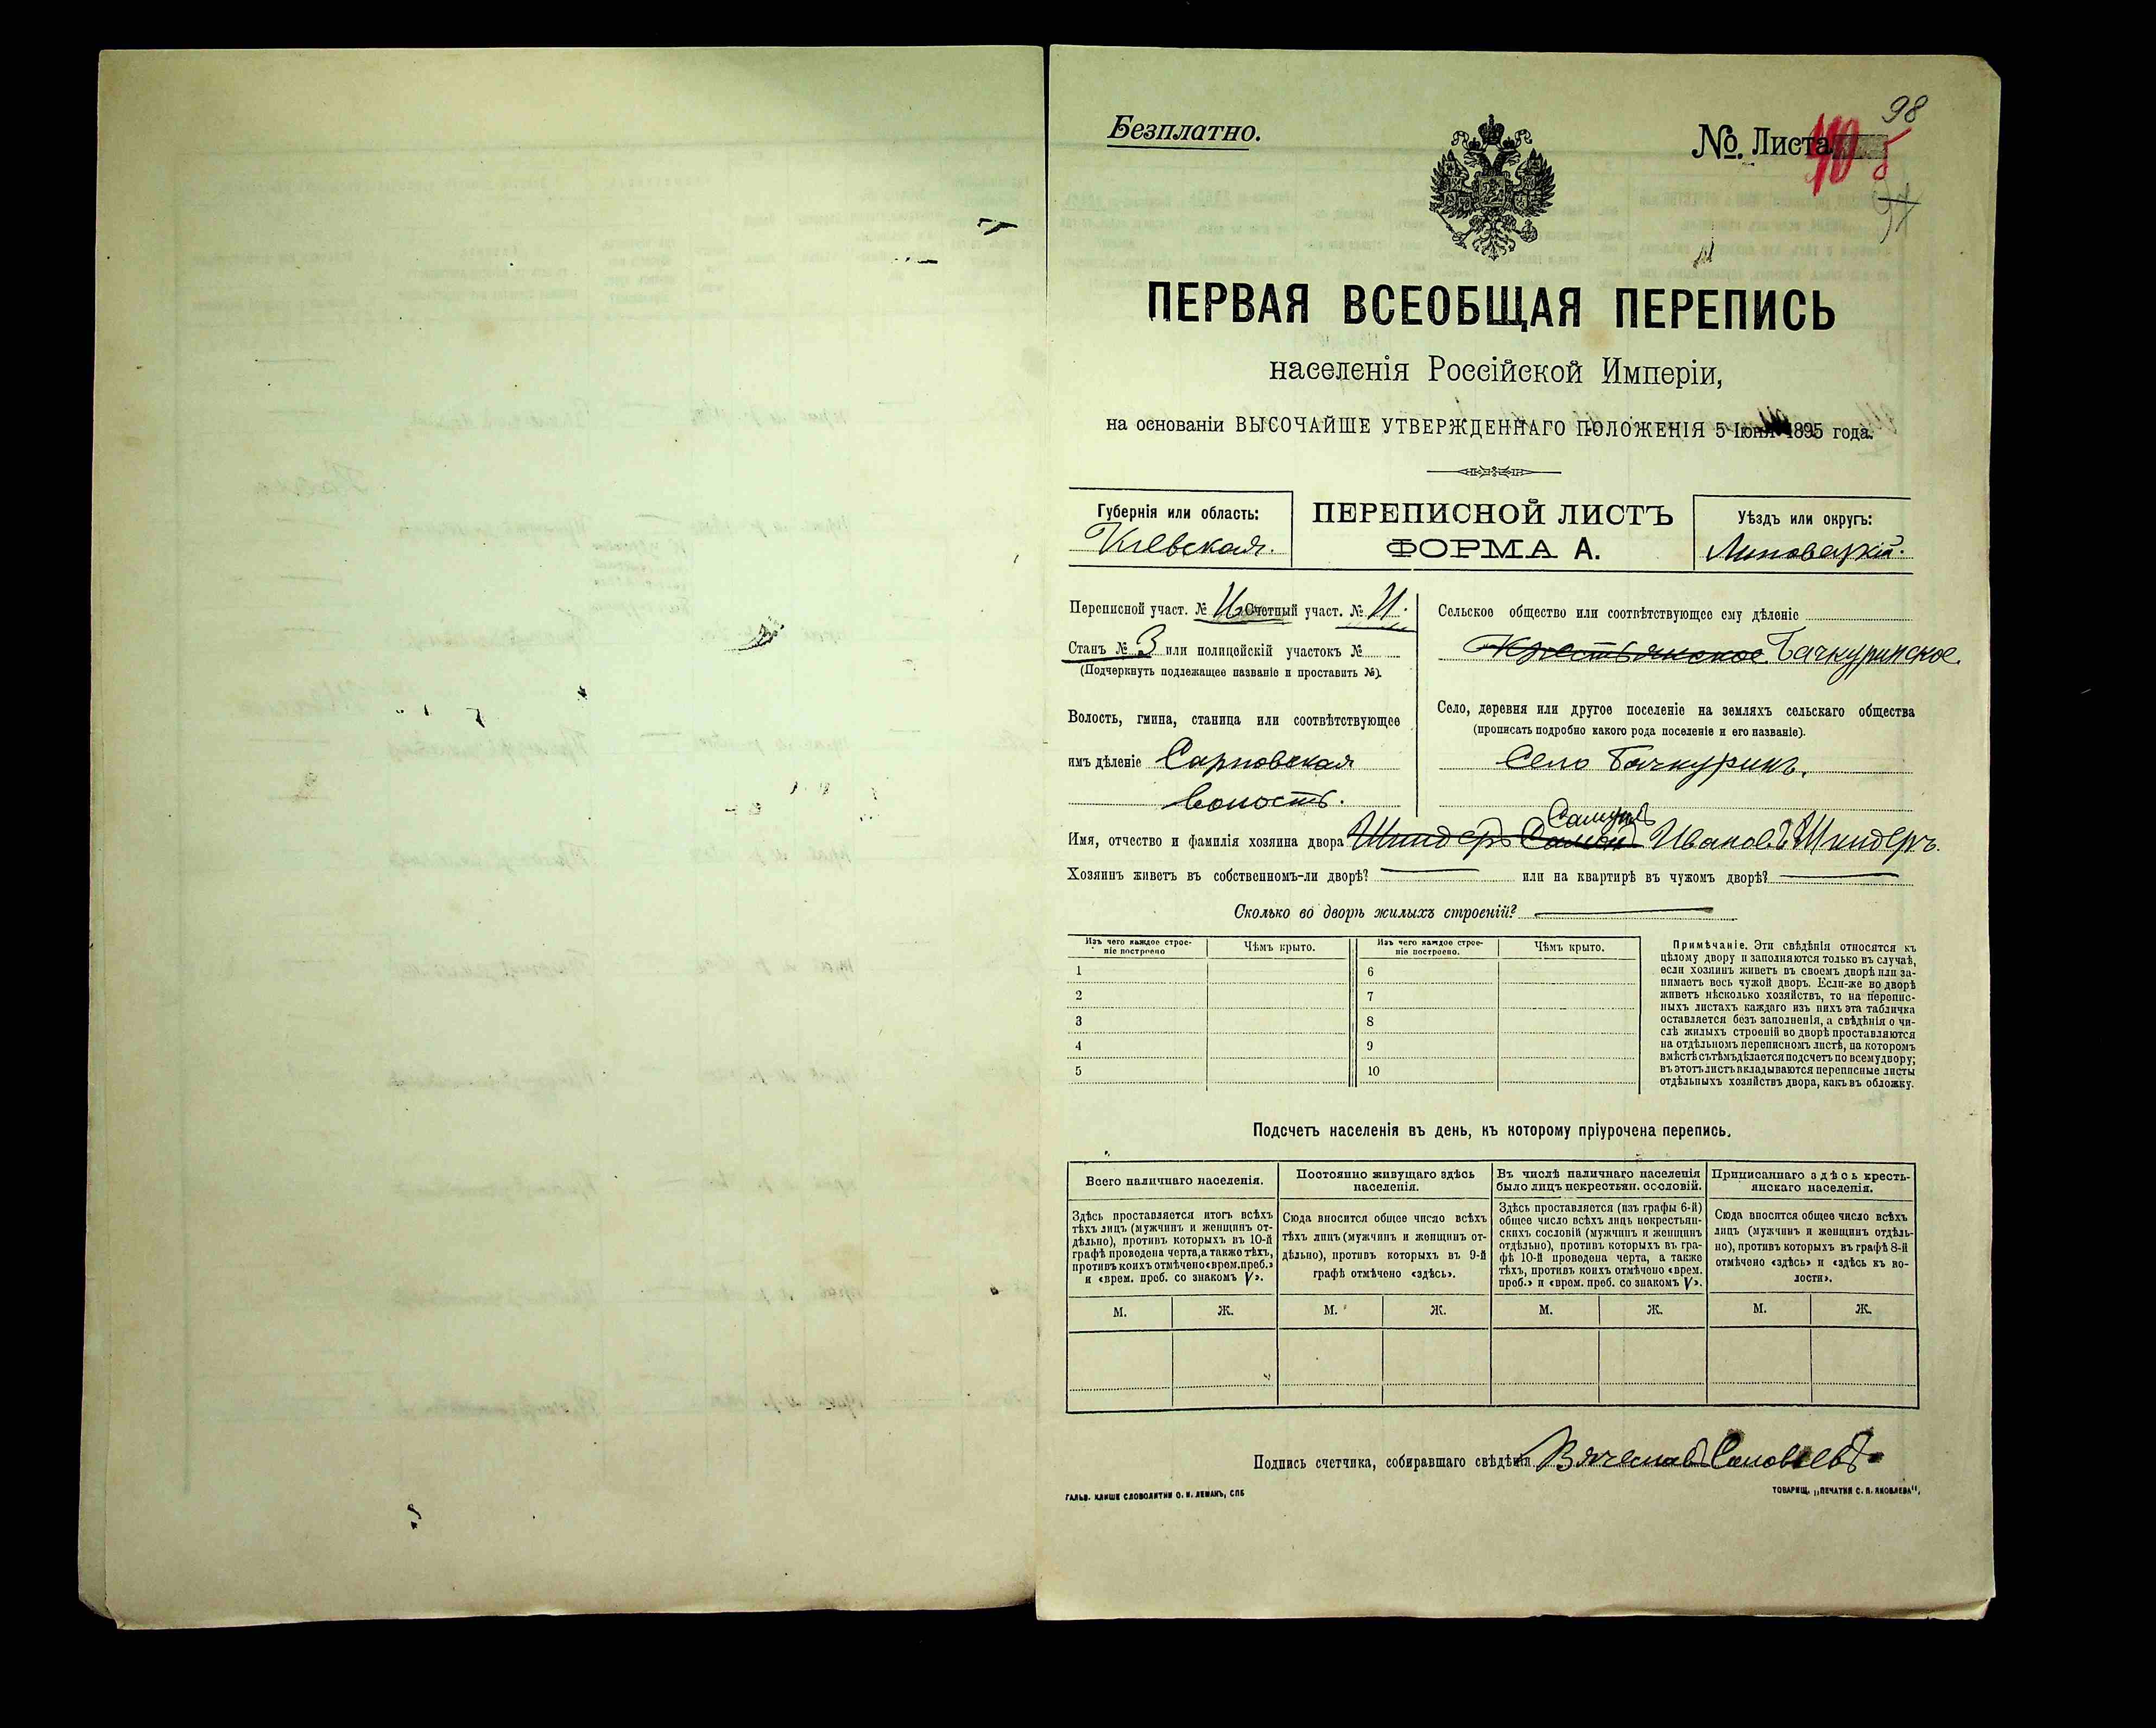 98
Безплатно.
№. Листа 40
97
ПЕРВАЯ ВСЕОБЩАЯ ПЕРЕПИСЬ
населенія Россійской Имперіи,
на основаніи ВЫСОЧАЙШЕ УТВЕРЖДЕННАГО ПОЛОЖЕНІЯ 5 Іюня 1895 года.
Губернія или область:
Кіевская.
ПЕРЕПИСНОЙ ЛИСТЪ
ФОРМА А.
Уѣздъ или округъ:
Липовецкій.
Переписной участ. № Счетный участ. №
Станъ № 3 или полицейскій участокъ №
(Подчеркнуть подлежащее названіе и проставить №).
Волость, гмина, станица или соотвѣтствующее
имъ дѣленіе Сарновская
волость.
Сельское общество или соотвѣтствующее ему дѣленіе
Крестьянское Бачкуринское.
Село, деревня или другое поселеніе на земляхъ сельскаго общества
(прописать подробно какого рода поселеніе и его названіе).
Село Бачкуринъ.
Самуилъ
Имя, отчество и фамилія хозяина двора Шиндеръ Ивановъ Шиндеръ.
Хозяинъ живетъ въ собственномъ-ли дворѣ? или на квартирѣ въ чужомъ дворѣ?
Сколько во дворѣ жилыхъ строеній?
Изъ чего каждое строе-
ніе построено
Чѣмъ крыто.
Изъ чего каждое строе-
ніе построено.
Чѣмъ крыто.
1 6
2 7
3 8
4 9
5 10
Примѣчаніе. Эти свѣдѣнія относятся къ
цѣлому двору и заполняются только въ случаѣ,
если хозяинъ живетъ въ своемъ дворѣ или за-
нимаетъ весь чужой дворъ. Если-же во дворѣ
живетъ нѣсколько хозяйствъ, то на перепис-
ныхъ листахъ каждаго изъ нихъ эта табличка
оставляется безъ заполненія, а свѣдѣнія о чи-
слѣ жилыхъ строеній во дворѣ проставляются
на отдѣльномъ переписномъ листѣ, на которомъ
вмѣстѣ съ тѣмъ дѣлается подсчетъ по всему двору;
въ этотъ листъ вкладываются переписные листы
отдѣльныхъ хозяйствъ двора, какъ въ обложку.
Подсчетъ населенія въ день, къ которому пріурочена перепись.
Всего наличнаго населенія.
Здѣсь проставляется итогъ всѣхъ
тѣхъ лицъ (мужчинъ и женщинъ от-
дѣльно), противъ которыхъ въ 10-й
графѣ проведена черта, а также тѣхъ,
противъ коихъ отмѣчено «врем. преб.»
и «врем. преб. со знакомъ V».
Постоянно живущаго здѣсь
населенія.
Сюда вносится общее число всѣхъ
тѣхъ лицъ (мужчинъ и женщинъ от-
дѣльно), противъ которыхъ въ 9-й
графѣ отмѣчено «здѣсь».
Въ числѣ наличнаго населенія
было лицъ некрестьян. сословій.
Здѣсь проставляется (изъ графы 6-й)
общее число всѣхъ лицъ некрестьян-
скихъ сословій (мужчинъ и женщинъ
отдѣльно), противъ которыхъ въ гра-
фѣ 10-й проведена черта, а также
тѣхъ, противъ коихъ отмѣчено «врем.
преб.» и «врем. преб. со знакомъ V».
Приписаннаго здѣсь кресть-
янскаго населенія.
Сюда вносится общее число всѣхъ
лицъ (мужчинъ и женщинъ отдѣль-
но), противъ которыхъ въ графѣ 8-й
отмѣчено «здѣсь» и «здѣсь къ во-
лости».
М. Ж. М. Ж. М. Ж. М. Ж.
Подпись счетчика, собиравшаго свѣдѣнія Вячеславъ Соловьевъ
ГАЛЬВ. КЛИШЕ СЛОВОЛИТНИ О. И. ЛЕМАНЪ, СПБ
ТОВАРИЩ. „ПЕЧАТНЯ С. П. ЯКОВЛЕВА“,